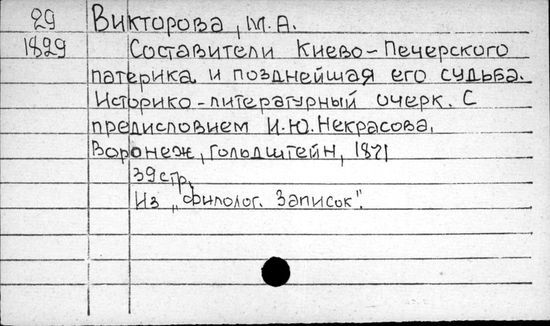 29 Викторова, М.А.
1829 Составители Киево-Печерского
патерика и позднейшая его судьба.
Историко-литературный очерк. С
предисловием И.Ю.Некрасова.
Воронеж, Гольдштейн, 1871
39 стр.
Из „Филолог. Записок".